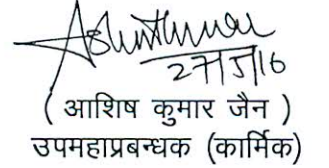 27/5/16
( आशिष कुमार जैन )
उपमहाप्रबन्धक (कार्मिक)